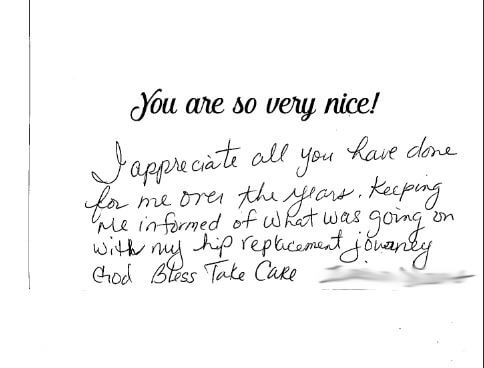 You are so very nice!
I appreciate all you have done
for me over the years. Keeping
me informed of what was going on
with my hip replacement journey
God Bless Take Care